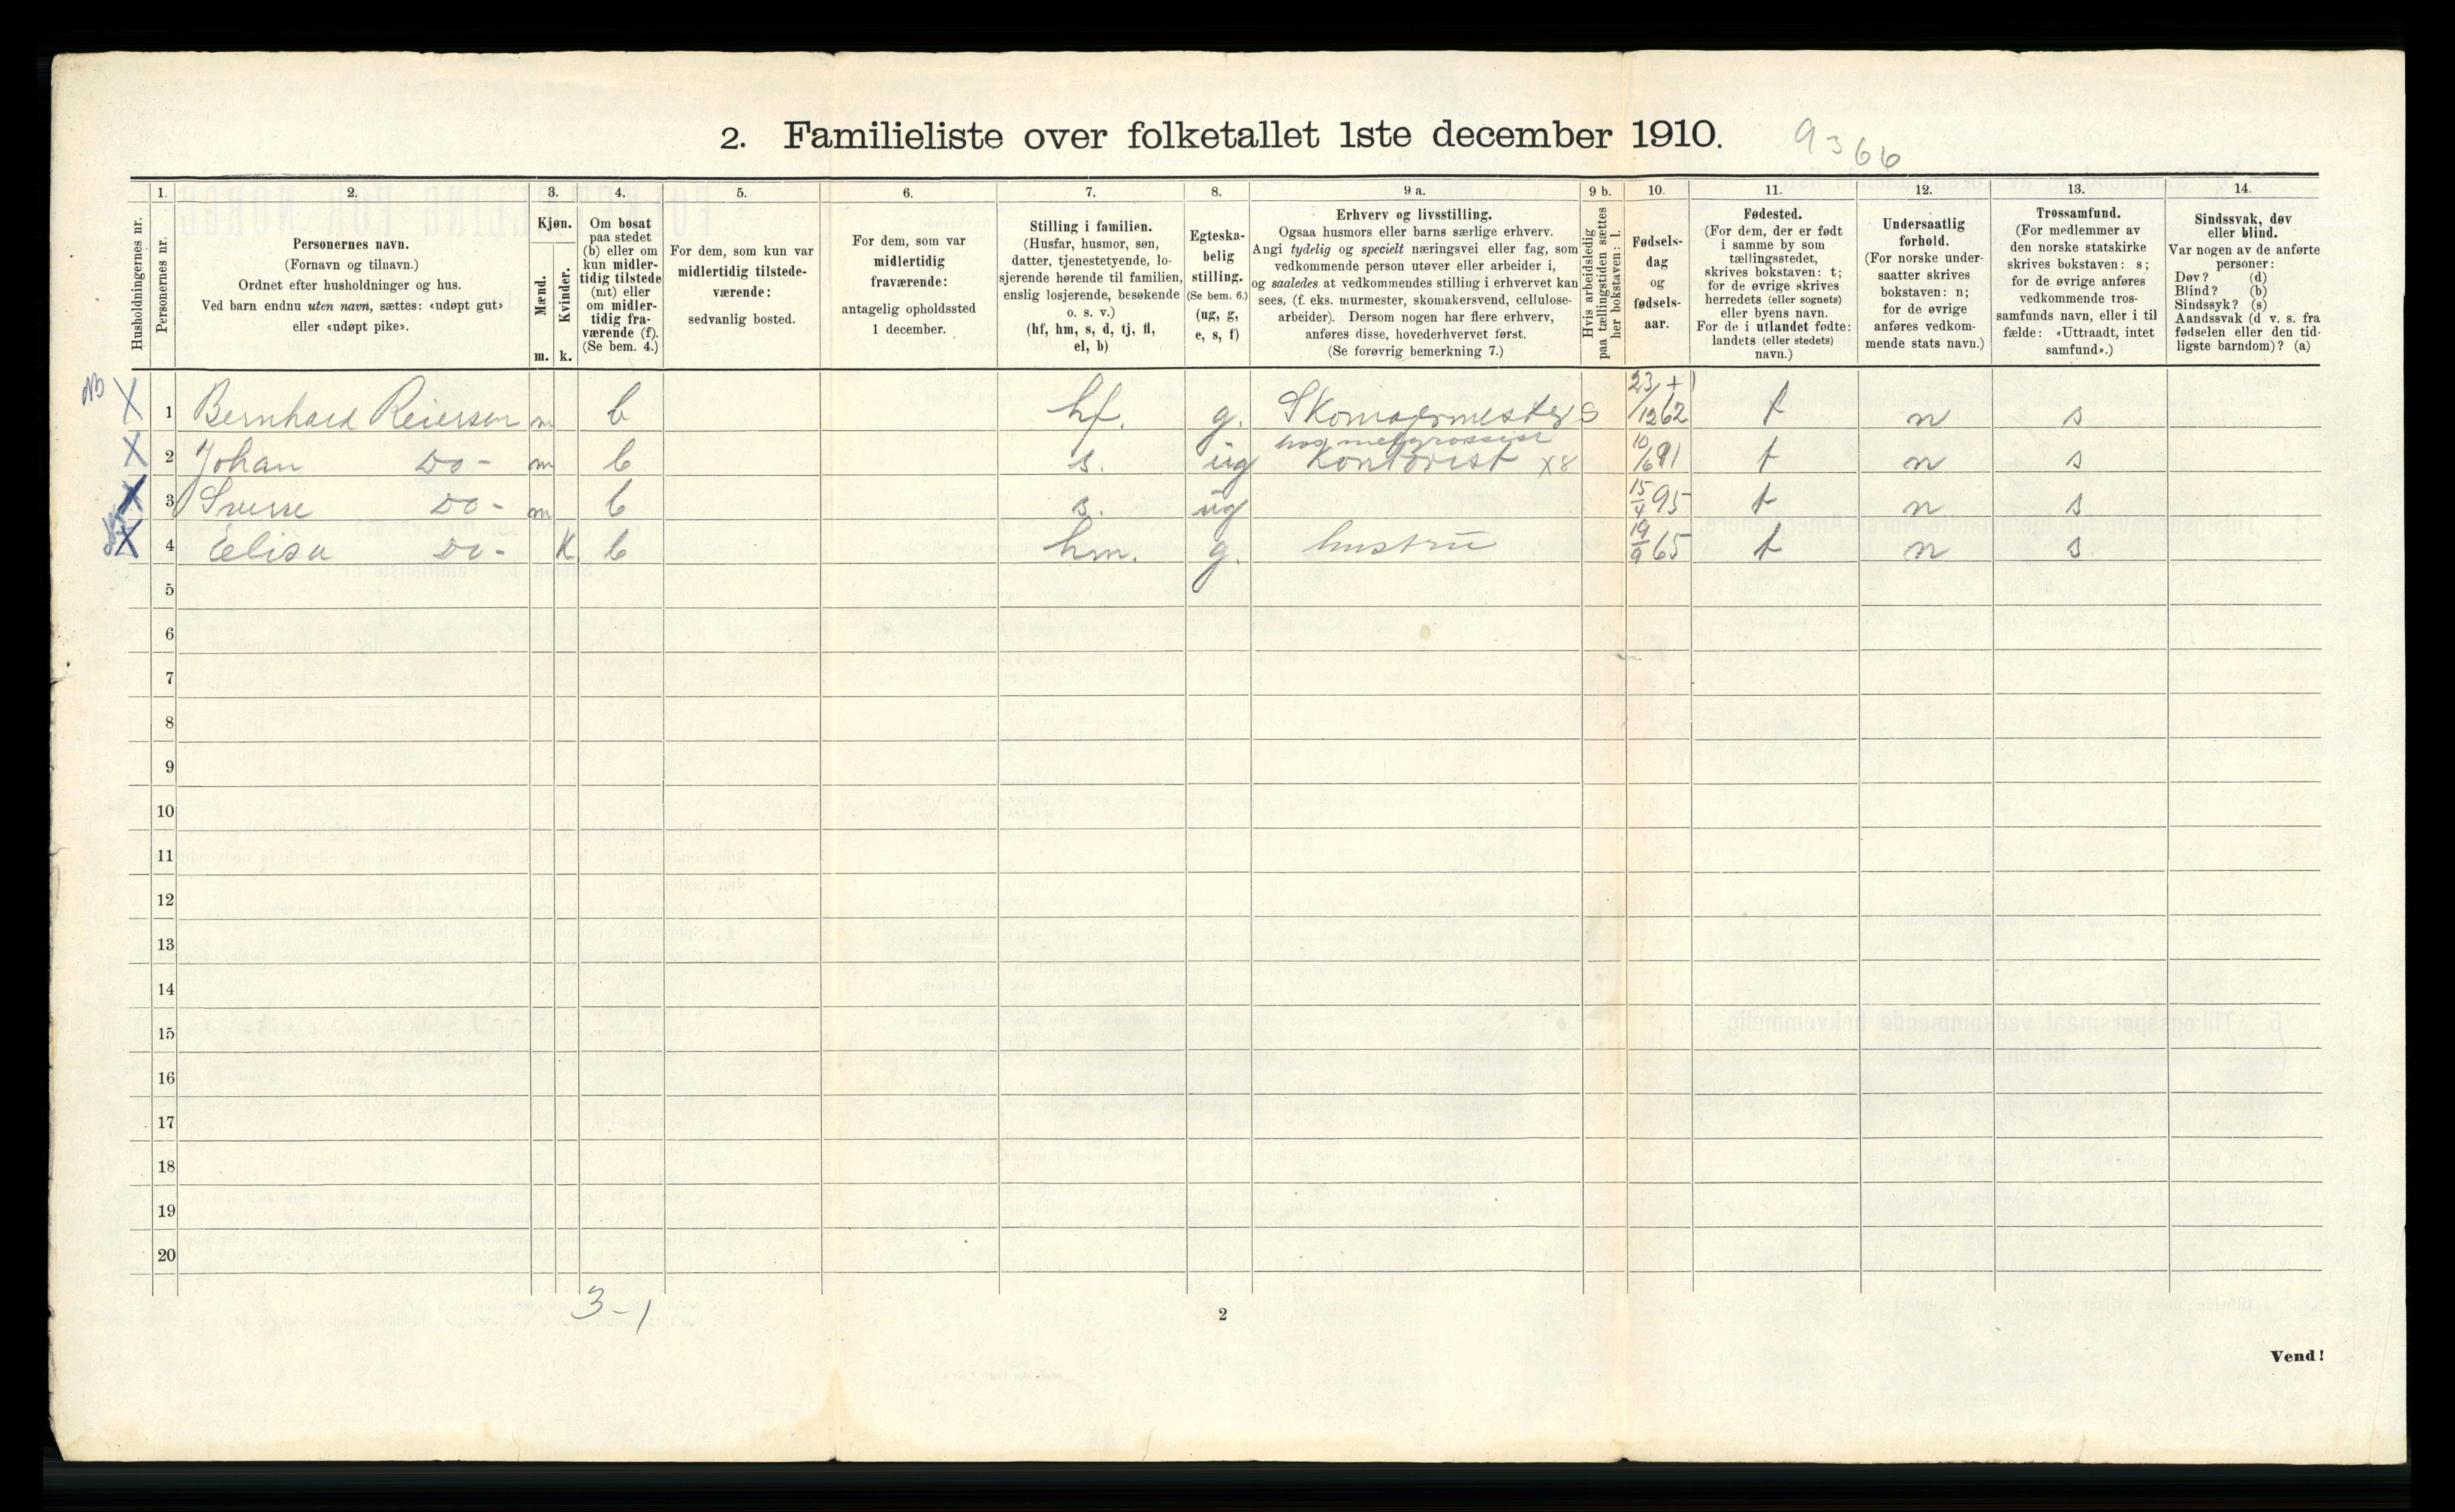 2. Familieliste over folketallet 1ste december 1910.
9366
Husholdningernes nr.
1.
Personernes nr.
2.
Personernes navn.
(Fornavn og tilnavn.)
Ordnet efter husholdninger og hus.
Ved barn endnu uten navn, sættes: «udøpt gut»
eller «udøpt pike».
3.
Kjøn.
Mænd.
m.
Kvinder.
k.
4.
Om bosat
paa stedet
(b) eller om
kun midler-
tidig tilstede
(mt) eller
om midler-
tidig fra-
værende (f).
(Se bem. 4.)
5.
For dem, som kun var
midlertidig tilstede-
værende:
sedvanlig bosted.
6.
For dem, som var
midlertidig
fraværende:
antagelig opholdssted
1 december.
7.
Stilling i familien.
(Husfar, husmor, søn,
datter, tjenestetyende, lo-
sjerende hørende til familien,
enslig losjerende, besøkende
o. s. v.)
(hf, hm, s, d, tj, fl,
el, b)
8.
Egteska-
belig
stilling.
(Se bem. 6.)
(ug, g,
e, s, f)
9 a.
Erhverv og livsstilling.
Ogsaa husmors eller barns særlige erhverv.
Angi tydelig og specielt næringsvei eller fag, som
vedkommende person utøver eller arbeider i,
og saaledes at vedkommendes stilling i erhvervet kan
sees, (f. eks. murmester, skomakersvend, cellulose-
arbeider). Dersom nogen har flere erhverv,
anføres disse, hovederhvervet først.
(Se forøvrig bemerkning 7.)
9 b.
Hvis arbeidsledig
paa tællingstiden sættes
her bokstaven: l.
10.
Fødsels-
dag
og
fødsels-
aar.
11.
Fødested.
(For dem, der er født
i samme by som
tællingsstedet,
skrives bokstaven: t;
for de øvrige skrives
herredets (eller sognets)
eller byens navn.
For de i utlandet fødte:
landets (eller stedets)
navn.)
12.
Undersaatlig
forhold.
(For norske under-
saatter skrives
bokstaven: n;
for de øvrige
anføres vedkom-
mende stats navn.)
13.
Trossamfund.
(For medlemmer av
den norske statskirke
skrives bokstaven: s;
for de øvrige anføres
vedkommende tros-
samfunds navn, eller i til
fælde: «Uttraadt, intet
samfund».)
14.
Sindssvak, døv
eller blind.
Var nogen av de anførte
personer:
Døv? (d)
Blind? (b)
Sindssyk? (s)
Aandssvak (d v. s. fra
fødselen eller den tid-
ligste barndom)? (a)
X 1 Bernhard Reiersen m b hf. g. Skomagermester S 23/12 62 t n s
X 2 Johan Do - m b s. ug Kontorist x8 10/6 91 t n s
X 3 Sverre Do - m b s. ug 15/4 95 t n s
X 4 Elisa Do - K b hm. g. hustru 19/9 65 t n s
5
6
7
8
9
10
11
12
13
14
15
16
17
18
19
20
3-1
2
Vend!